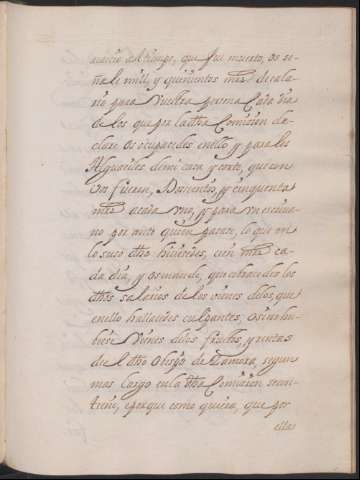 al tiempo, que fui muerto, os se-
ñale mill, y quinientos mrs de sala-
rio para vuestra persona cada dia
de los que por la dha Comision de-
clare os ocuparedes en ello, y para los
Alguaciles de mi casa, y corte, que con
vos fueran, Docientos, y cinquenta
mrs a cada uno, y para un escriua-
no por ante quien pasase, lo que en
lo suso dho hicieredes, cien mrs ca-
da dia, y os mande, que cobrasedes los
dhos salarios de los vienes delos, que
en ello hallasedes culpantes, o sino hu-
biese vienes delos fructos, y rentas
del dho Obispo de Zamora, segun
mas largo en la dha Comision se con-
tiene, e porque como quiera, que por
ella